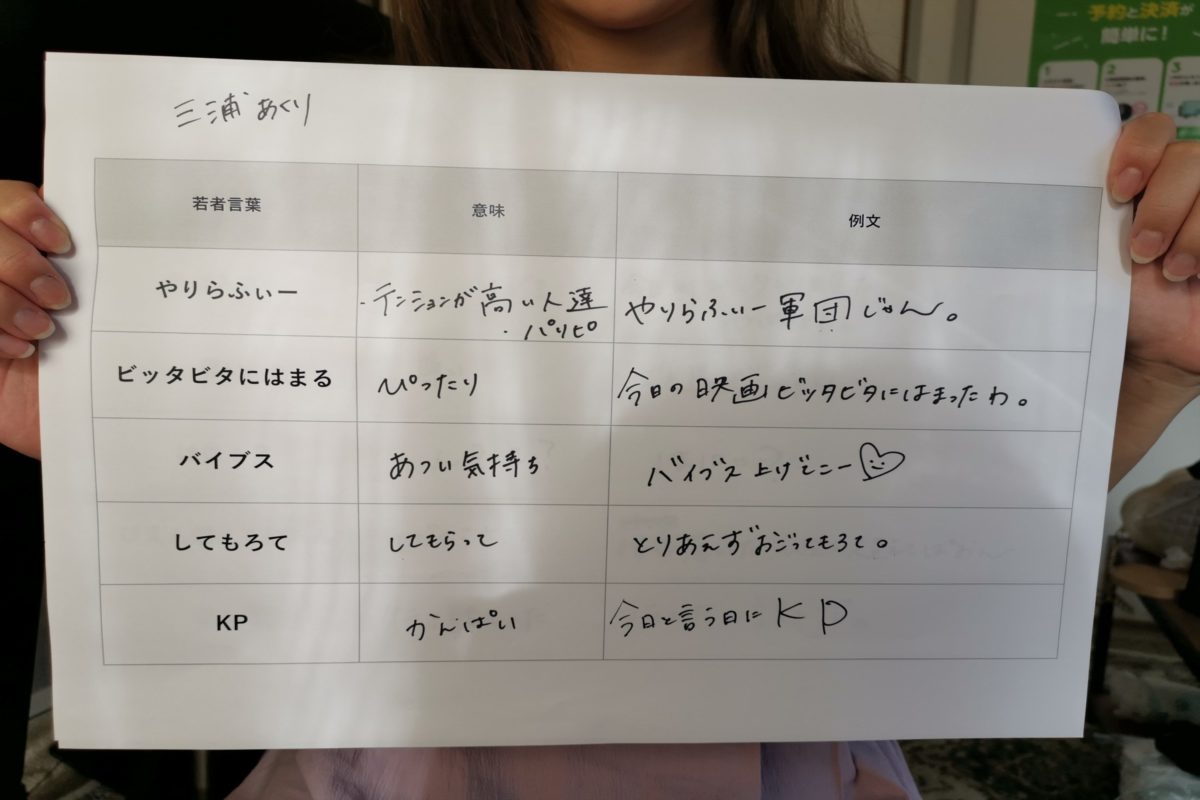 予約と決済が
簡単に!
1
2
3
三浦あぐり
若者言葉
意味
例文
やりらふぃー
・テンションが高い人達
・パリピ
やりらふぃー軍団じゃん。
ビッタビタにはまる
ぴったり
今日の映画ビッタビタにはまったわ。
バイブス
あつい気持ち
バイブス上げてこー
してもろて
してもらって
とりあえずおごってもろて。
KP
かんぱい
今日と言う日にKP